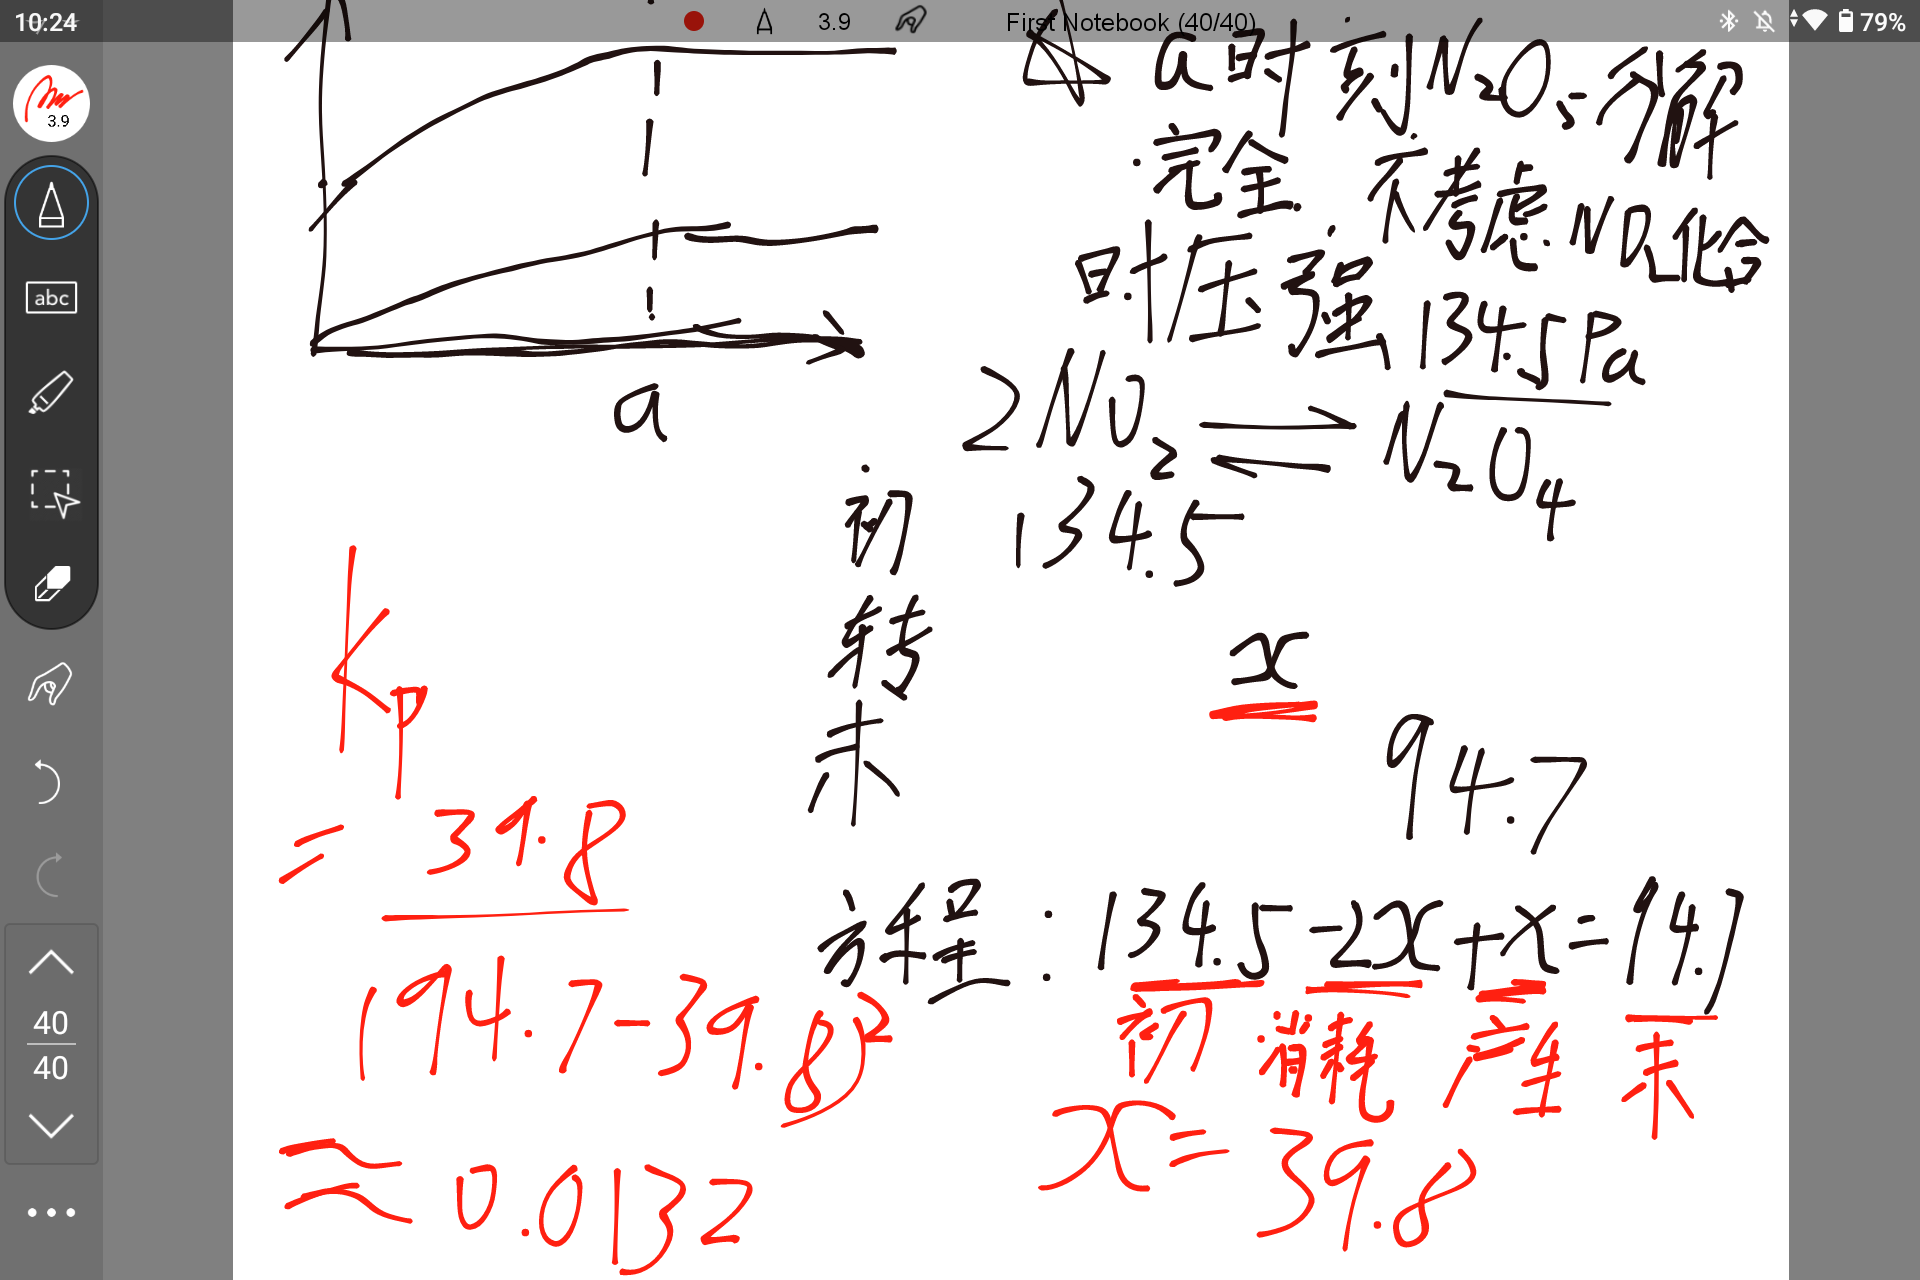 10:24
3.9
First Notebook (40/40)
79%
3.9
abc
40
40
a
a时刻N₂O₅分解
完全.不考虑NO₂化合
时压强134.5Pa
2NO₂ ⇌ N₂O₄
初 134.5
转 x
末 94.7
方程：134.5-2x+x=94.7
初 消耗 产生 末
x=39.8
Kp
= 39.8
(94.7-39.8)²
≈0.0132